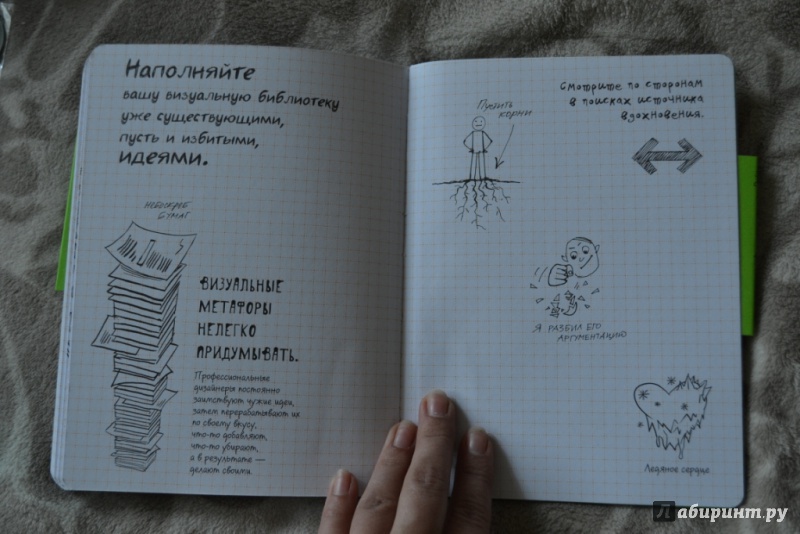 Наполняйте
вашу визуальную библиотеку
уже существующими,
пусть и избитыми,
идеями.
НЕБОСКРЕБ
БУМАГ
ВИЗУАЛЬНЫЕ
МЕТАФОРЫ
НЕЛЕГКО
ПРИДУМЫВАТЬ.
Профессиональные
дизайнеры постоянно
заимствуют чужие идеи,
затем перерабатывают их
по своему вкусу,
что-то добавляют,
что-то убирают,
а в результате —
делают своими.
Пустить
корни
Смотрите по сторонам
в поисках источника
вдохновения.
Я РАЗБИЛ ЕГО
АРГУМЕНТАЦИЮ
Ледяное сердце
Лабиринт.ру